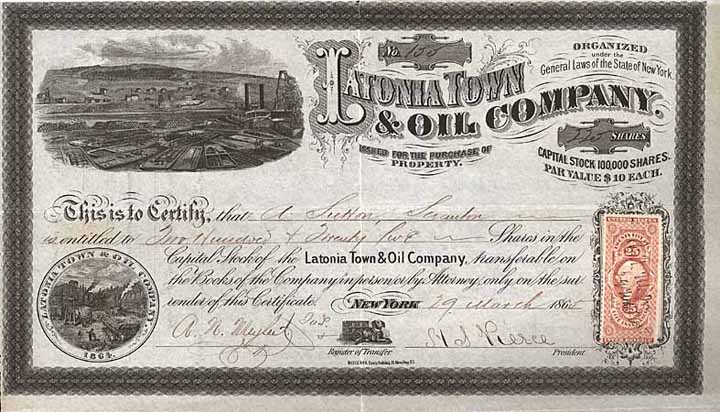 No. 100
LATONIA TOWN
& OIL COMPANY.
ORGANIZED
under the
General Laws of the State of New York
ISSUED FOR THE PURCHASE OF
PROPERTY.
SHARES
CAPITAL STOCK 100,000 SHARES.
PAR VALUE $10 EACH.
This is to Certify, that A Sutton, Scranton
is entitled to Two Hundred & Twenty Five Shares in the
Capital Stock of the Latonia Town & Oil Company, transferable on
the Books of the Company in person or by Attorney, only on the sur
render of this Certificate. NEW YORK 29 March 1865
LATONIA TOWN & OIL COMPANY
1864
25
25
Register of Transfer
President